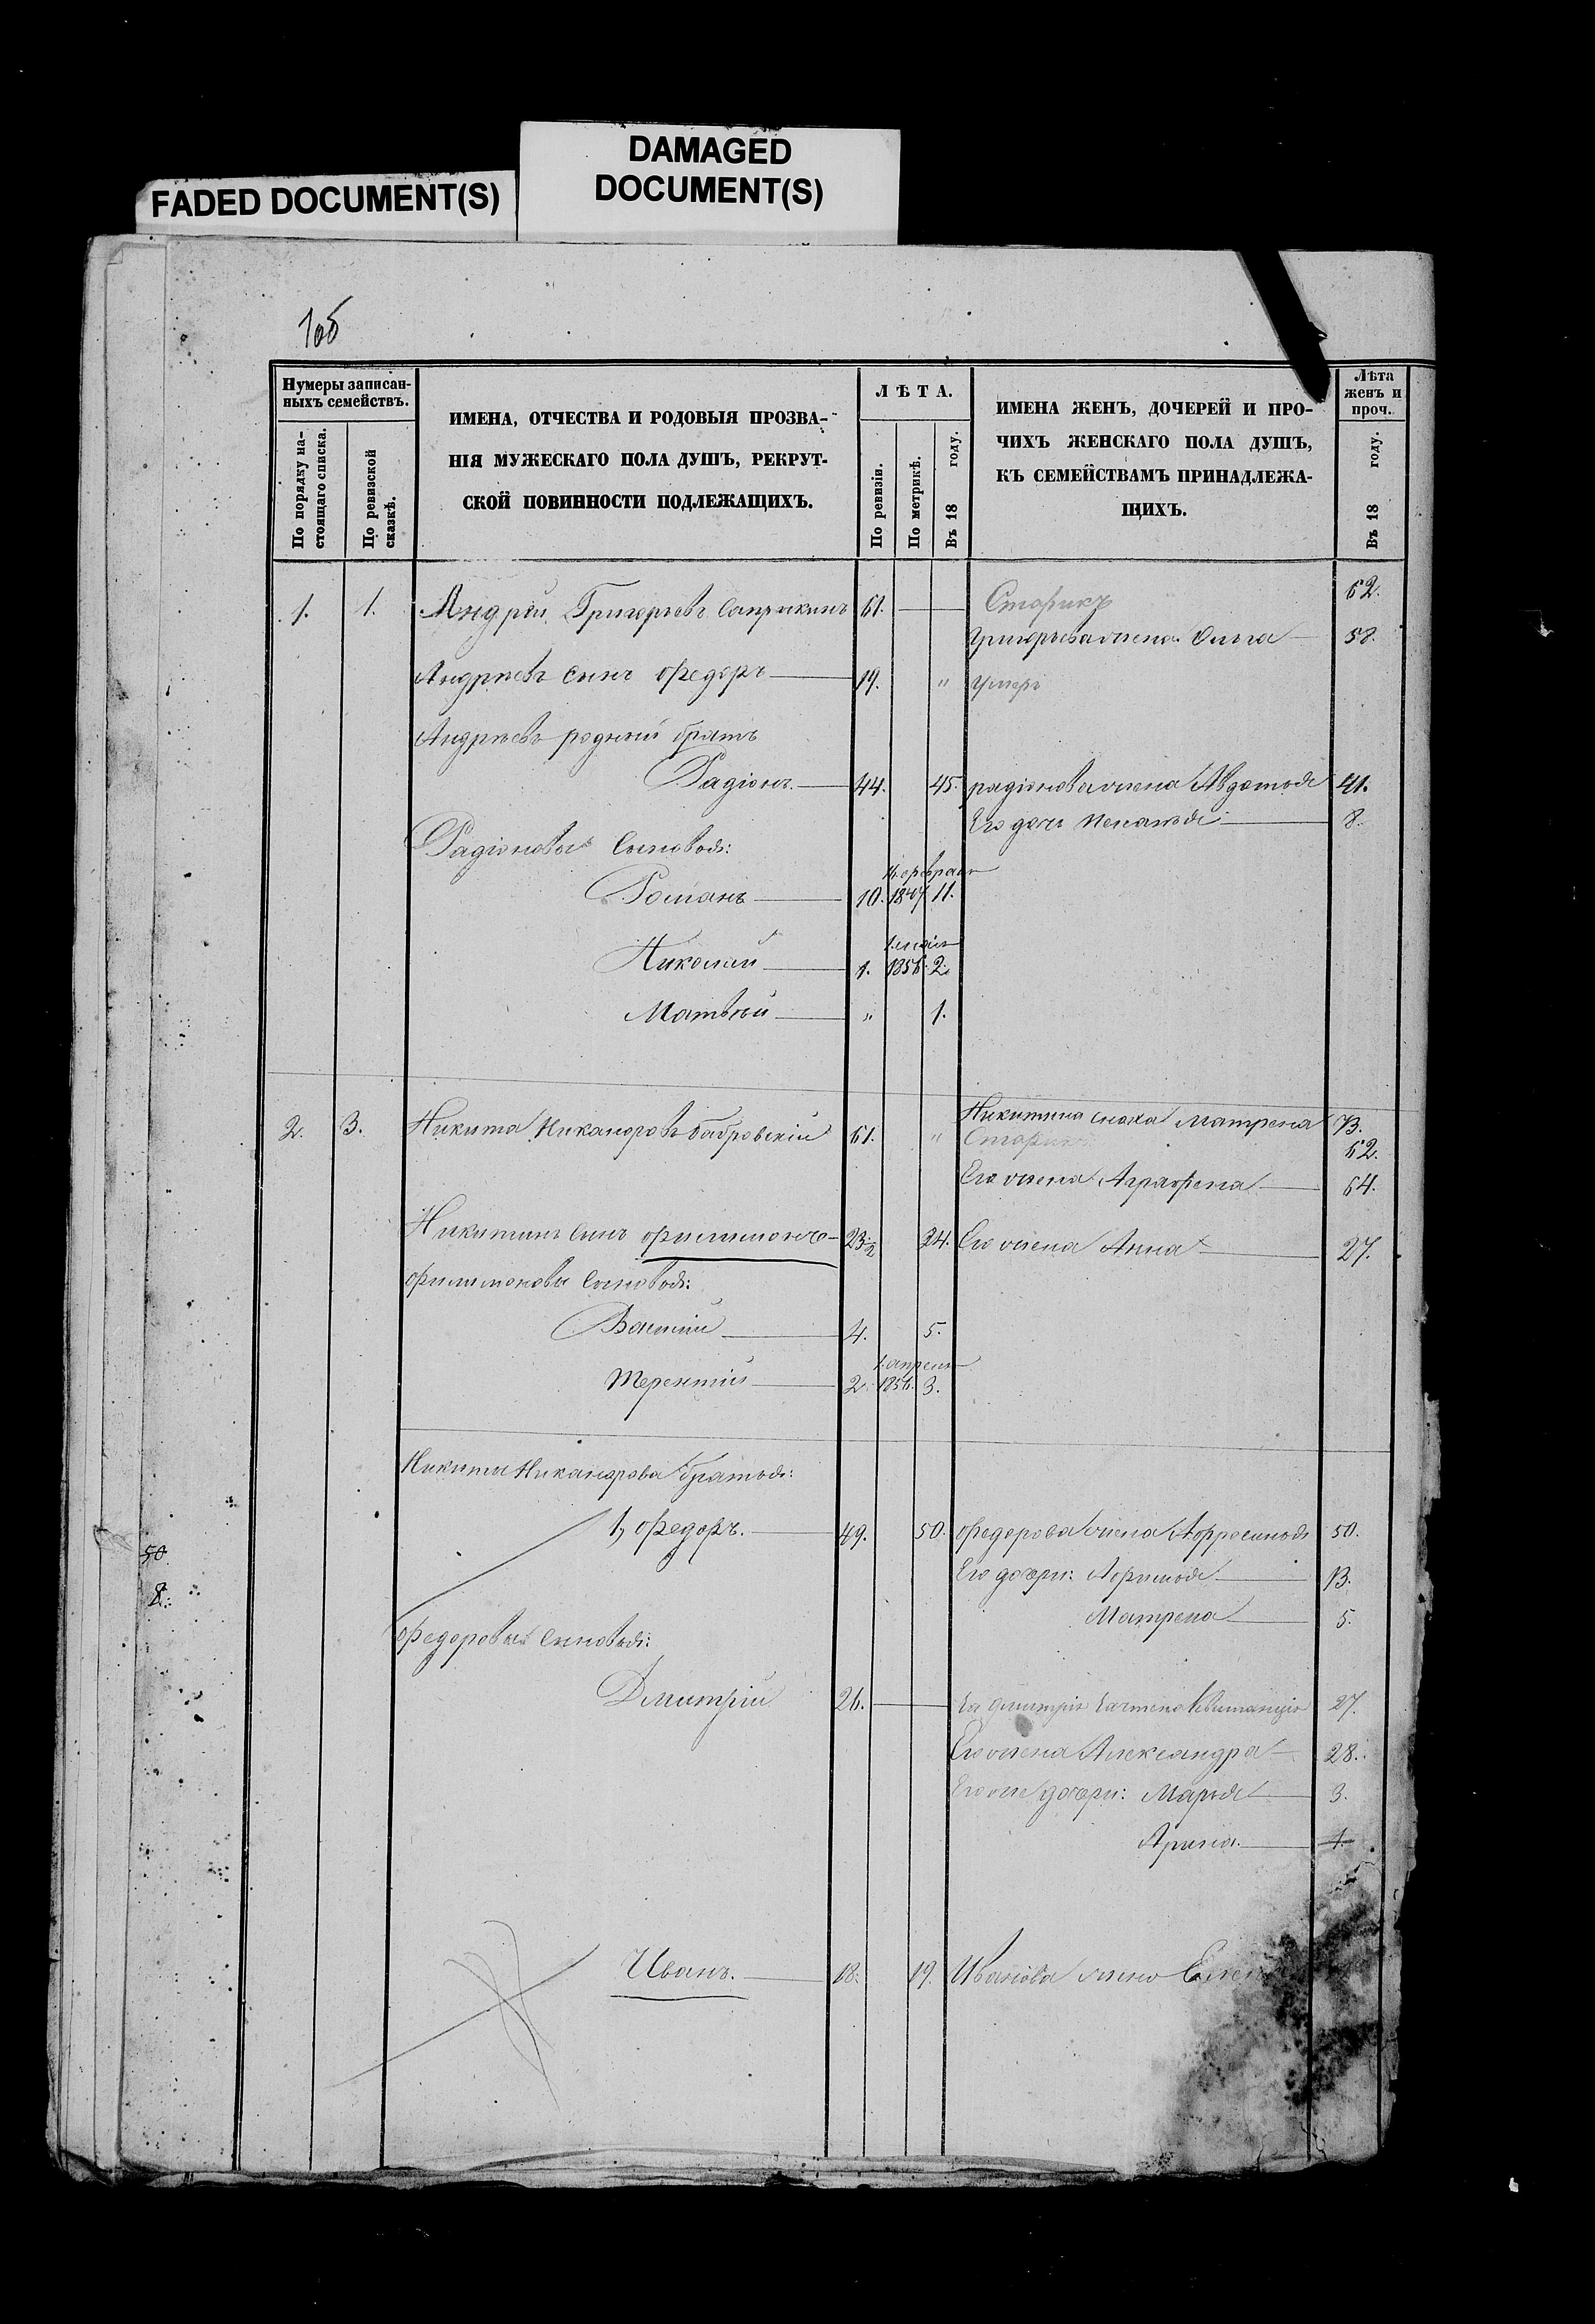 FADED DOCUMENT(S)
DAMAGED
DOCUMENT(S)
Нумеры записан-
ныхъ семействъ.
По порядку на-
стоящаго списка.
По ревизской
сказкѣ.
ИМЕНА, ОТЧЕСТВА И РОДОВЫЯ ПРОЗВА-
НІЯ МУЖЕСКАГО ПОЛА ДУШЪ, РЕКРУТ-
СКОЙ ПОВИННОСТИ ПОДЛЕЖАЩИХЪ.
ЛѢТА.
По ревизіи.
По метрикѣ.
Въ 18 году.
ИМЕНА ЖЕНЪ, ДОЧЕРЕЙ И ПРО-
ЧИХЪ ЖЕНСКАГО ПОЛА ДУШЪ,
КЪ СЕМЕЙСТВАМЪ ПРИНАДЛЕЖА-
ЩИХЪ.
Лѣта
женъ и
проч.
Въ 18 году.
1. 1. Андрей Григорьевъ Сапрыкинъ 61. Старикъ 62.
Григорьева жена Ольга 58.
Андреевъ сынъ Федоръ 19. " Умеръ
Андреевъ родный братъ
Радіонъ 44. 45. радіонова жена Авдотья 41.
Его дочь 8.
Радіоновы сыновья:
Романъ 10. 1847 11.
1. мая
Николай 1. 1856. 2.
Матвѣй " 1.
2. 3. Никита Никаноровъ Бабровскій 61. " Никитина сноха Матрена 73.
Старикъ 62.
Его жена Аграфена 64.
Никитинъ сынъ Филимонъ 23½ 24. Его жена Анна 27.
Филимоновы сыновья:
4. 5.
1. апреля
Терентій 2. 1856. 3.
Никиты Никанорова братья:
1, Федоръ. 49. 50. Федорова жена Афросинья 50.
Его дочери: Афимья 13.
Матрена 5.
Федоровы сыновья:
Дмитрій 26. За Дмитрія квитанція 27.
Его жена Александра 28.
Его же дочери: Марья 3.
Арина. 1.
Иванъ. 18. 19. Иванова жена
50
8.